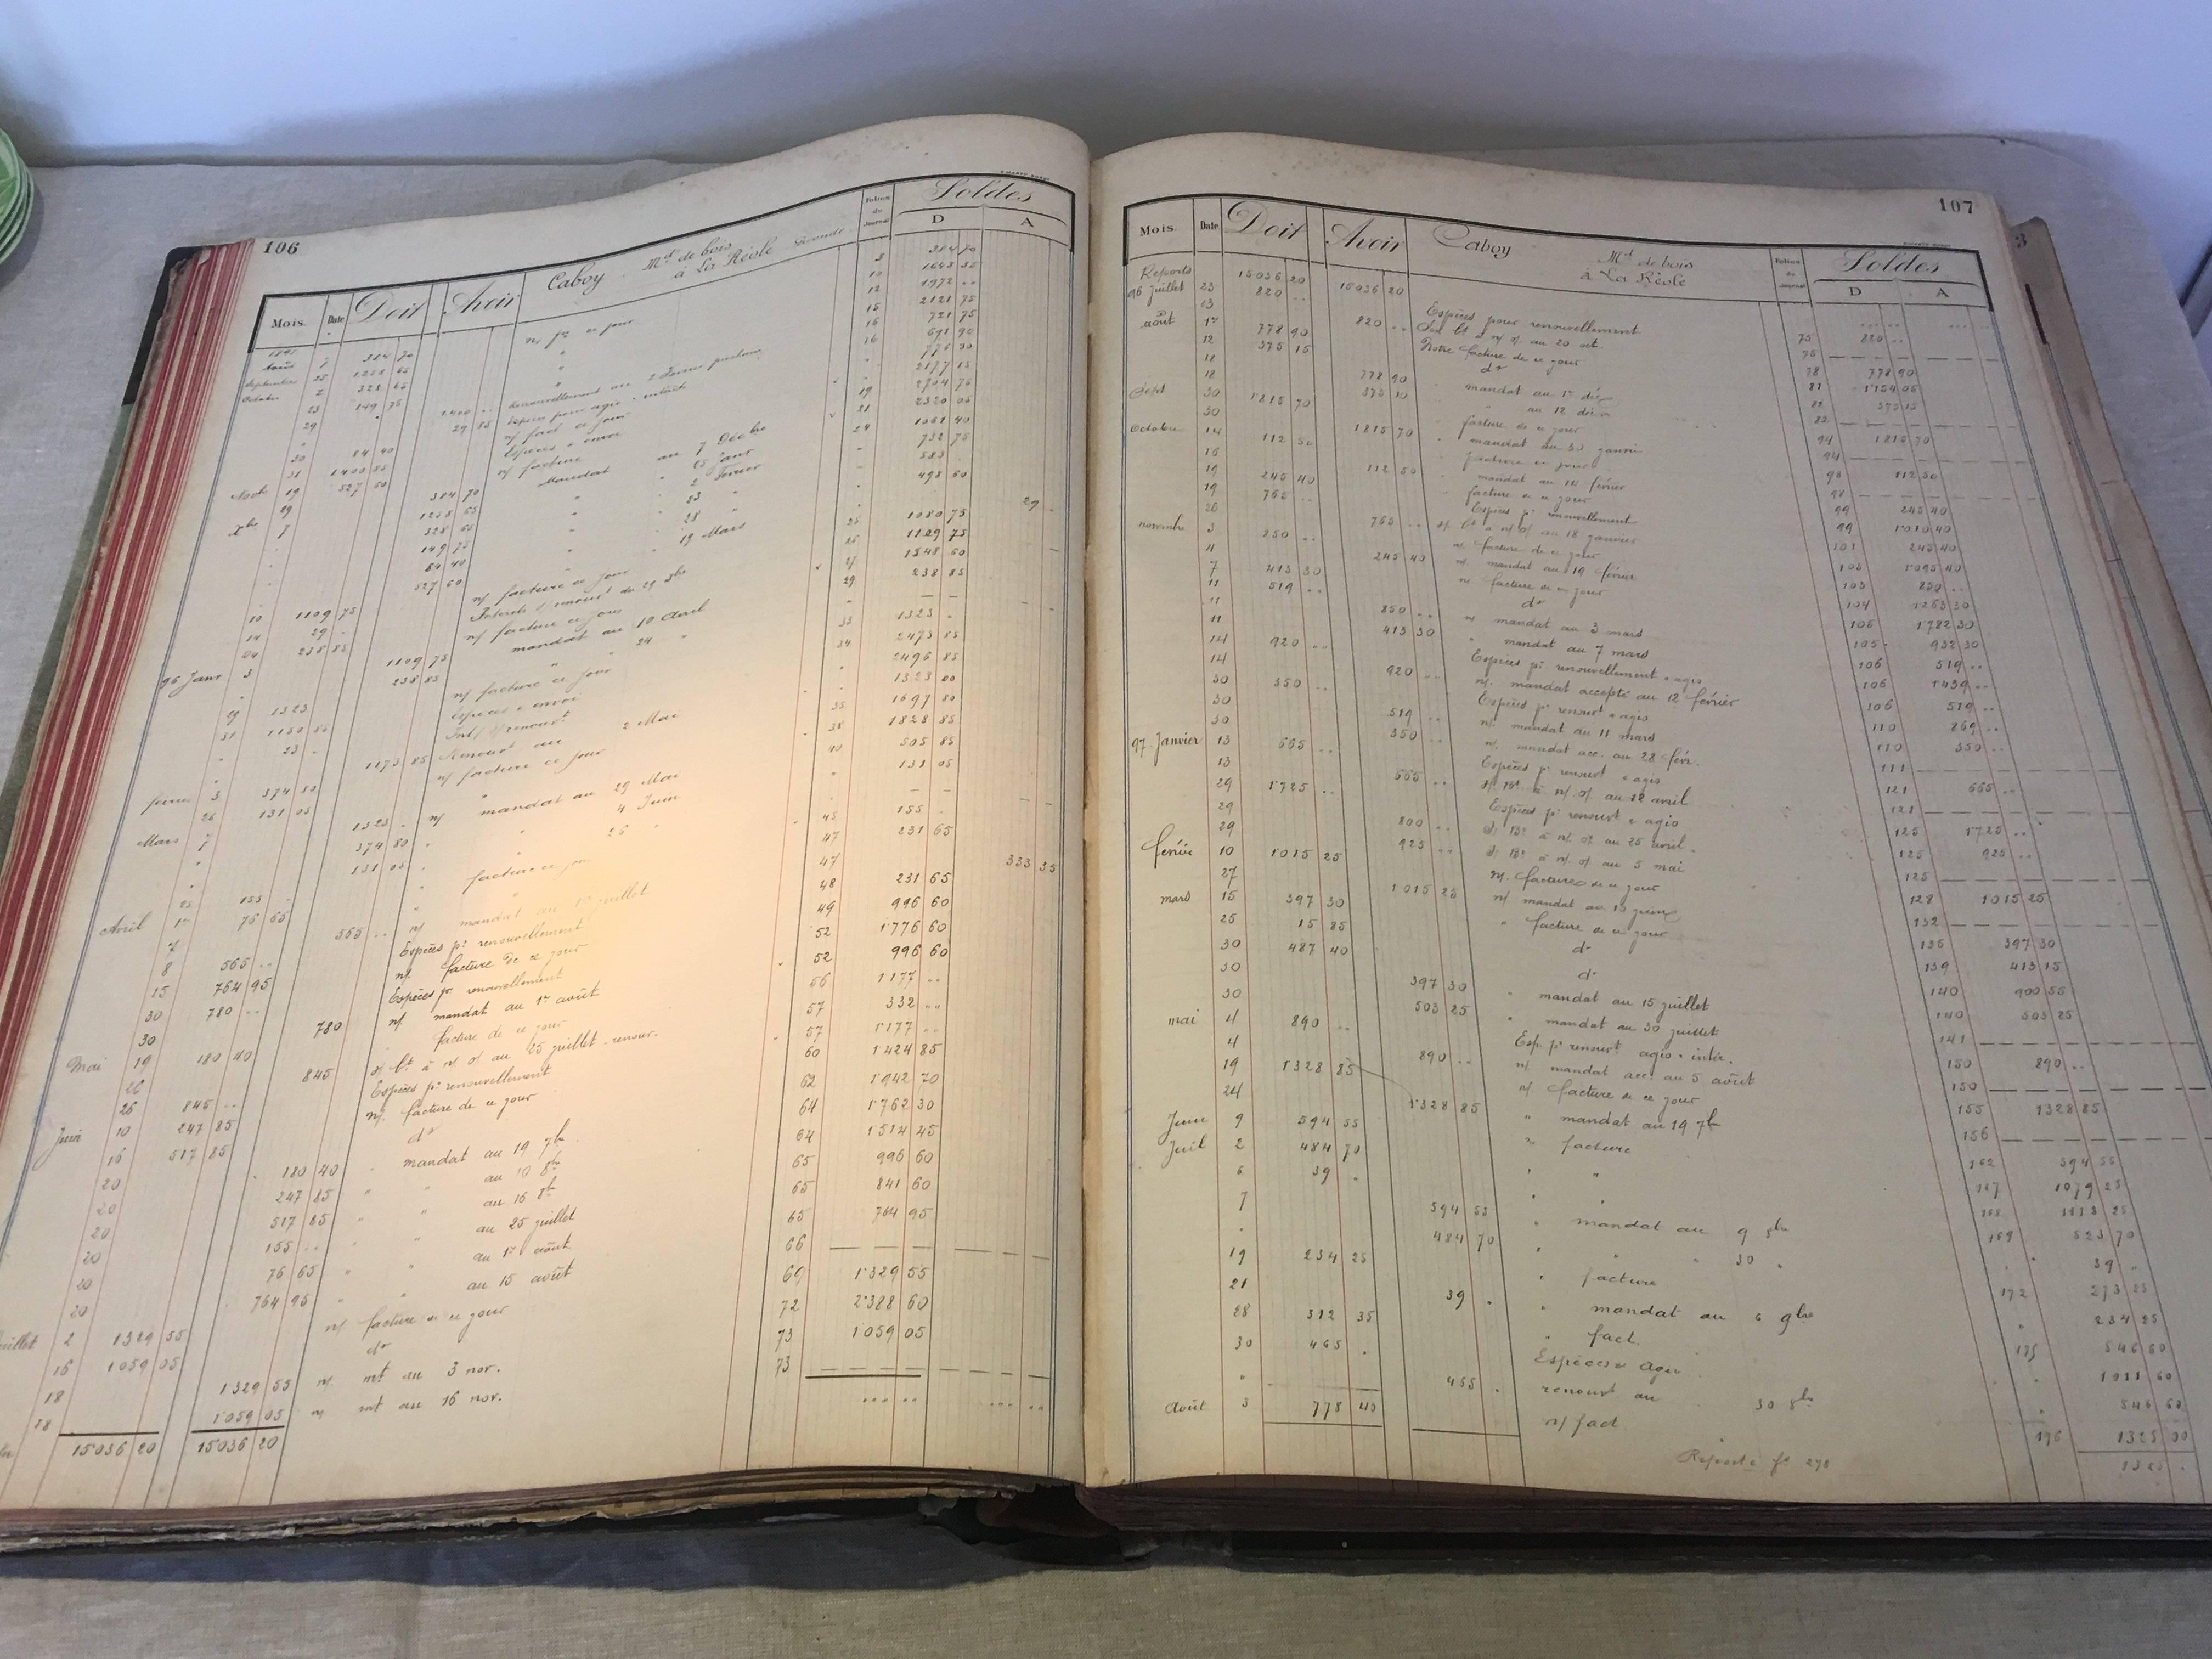 106
Mois Date Doit Avoir Caboy Md de bois à La Réole Gironde Folios du Journal Soldes
D A
n/ fre ce jour
Août 7 384 70 5 384 70
Septembre 25 1258 65 10 1643 35
Octobre 2 328 65 12 1972 ..
23 149 75 15 2121 75
29 1400 .. renouvellement au 16 721 75
29 85 16 691 90
30 84 40 n/ fact ce jour 776 30
31 1400 85 Espèces + envoi 2177 15
Novbr 19 527 60 n/ facture 19 2704 75
29 384 70 Mandat au 7 Décbre 21 2320 05
Xbre 7 1258 65 " 25 Janr 24 1061 40
328 65 " 2 Février 732 75
149 75 " 23 " 583 .
84 40 " 28 " 498 60
527 60 " 19 Mars 29 .
10 1109 75 n/ facture ce jour 25 1080 75
14 29 . 25 1109 75
24 238 85 n/ facture ce jour 27 1348 60
96 Janr 3 1109 75 mandat au 10 Avril 29 238 85
238 85 " " 24 " — —
29 1323 n/ facture ce jour 33 1323 .
31 1150 85 Espèces + envoi 34 2473 85
23 . 2496 85
1173 85 Renouvt au 2 Mai 1323 00
février 3 374 80 n/ facture ce jour 35 1697 80
26 131 05 " 38 1828 85
Mars 7 1323 . n/ mandat au 29 Mai 40 505 85
" 374 80 " 4 Juin 131 05
" 131 05 " 26 " — —
25 155 . facture ce jour 45 155 .
Avril 1er 76 65 " 47 231 65
7 565 .. n/ mandat au 1er juillet 47 333 35
8 565 .. Espèces pr renouvellement 48 231 65
15 764 95 n/. facture de ce jour 49 996 60
30 780 .. Espèces pr renouvellement 52 1776 60
30 780 n/ mandat au 1er août 52 996 60
Mai 19 180 40 facture de ce jour 56 1177 ..
26 845 s/ bt à n/ o/ au 25 juillet - renouv. 57 332 ..
26 845 .. Espèces pr renouvellement 57 1177 ..
Juin 10 247 85 n/. facture de ce jour 60 1424 85
16 517 85 do 62 1942 70
20 180 40 " mandat au 19 7bre 64 1762 30
20 247 85 " " au 10 8bre 64 1514 45
20 517 85 " " au 16 8bre 65 996 60
20 155 .. " " au 25 juillet 65 841 60
20 76 65 " " au 1er août 65 764 95
20 764 95 " " au 15 août 66 — —
Juillet 2 1329 55 n/ facture de ce jour 69 1329 55
16 1059 05 do 72 2388 60
18 1329 55 n/. mt au 3 nov. 73 1059 05
18 1059 05 n/ mt au 16 nov. 73 — —
15036 20 15036 20
107
Mois Date Doit Avoir Caboy Md de bois à La Réole Folios du Journal Soldes
D A
Reports 15036 20 15036 20
96 Juillet 23 820 .. Espèces pour renouvellement 75 820 ..
820 .. Son bt à n/ o/. au 20 oct. 75 — —
août 1er 778 90 Notre facture de ce jour 78 778 90
12 375 15 do 81 1154 05
18 778 90 " mandat au 1er déc 82 375 15
18 375 15 " au 12 déc 82 — —
Sept 30 1815 70 facture de ce jour 94 1815 70
30 1815 70 " mandat au 30 janvier 94 — —
Octobre 14 112 50 facture ce jour 98 112 50
16 112 50 " mandat au 14 février 98 — —
19 245 40 facture de ce jour 99 245 40
19 765 .. Espèces pr renouvellement 99 1010 40
26 765 .. s/ bt à n/ o/ au 18 janvier 101 245 40
novembre 3 850 .. n/ facture de ce jour 103 1095 40
4 245 40 n/. mandat au 19 février 103 850 ..
7 413 30 n/ facture de ce jour 104 1263 30
11 519 .. do 105 1782 30
11 850 .. n/ mandat au 3 mars 105 932 30
11 413 30 " mandat au 7 mars 106 519 ..
14 920 .. Espèces pr renouvellement + agio 106 1439 ..
14 920 .. n/. mandat accepté au 12 février 106 519 ..
30 350 .. Espèces pr renouvt + agio 110 869 ..
30 519 .. n/ mandat au 11 mars 110 350 ..
30 350 .. n/. mandat acc. au 28 févr. 111 — —
97 Janvier 13 665 .. Espèces pr renouvt + agio 121 665 ..
13 665 .. s/ Bt à n/. o/. au 12 avril 121 — —
29 1725 .. Espèces pr renouvt + agio 125 1725 ..
29 800 .. s/ Bt à n/. o/ au 25 avril 125 925 ..
29 925 .. s/ Bt à n/. o/ au 5 mai 125 — —
février 10 1015 25 n/. facture de ce jour 128 1015 25
27 1015 25 n/ mandat au 15 juin 132 — —
mars 15 397 30 " facture de ce jour 136 397 30
25 15 85 do 139 413 15
30 487 40 do 140 900 55
30 397 30 " mandat au 15 juillet 140 503 25
30 503 25 " mandat au 30 juillet 141 — —
mai 4 890 .. Esp. pr renouvt agio + intér. 150 890 ..
4 890 .. n/ mandat acc. au 5 août 150 — —
19 1328 85 n/. facture de ce jour 155 1328 85
24 1328 85 " mandat au 19 7bre 156 — —
Juin 9 594 55 " facture 162 594 55
Juil 2 484 70 " " 167 1079 25
6 39 . " " 168 1118 25
7 594 55 " mandat au 9 8bre 169 523 70
" 484 70 " " 30 " 39 .
19 234 25 " facture 172 273 25
21 39 . " mandat au 6 9bre 234 25
28 312 35 " fact. 175 546 60
30 465 . Espèces + agio 1011 60
" 465 . renouvt au 30 8bre 546 60
Août 3 778 40 n/ fact 176 1325 00
Reporté fo 278 1325 .